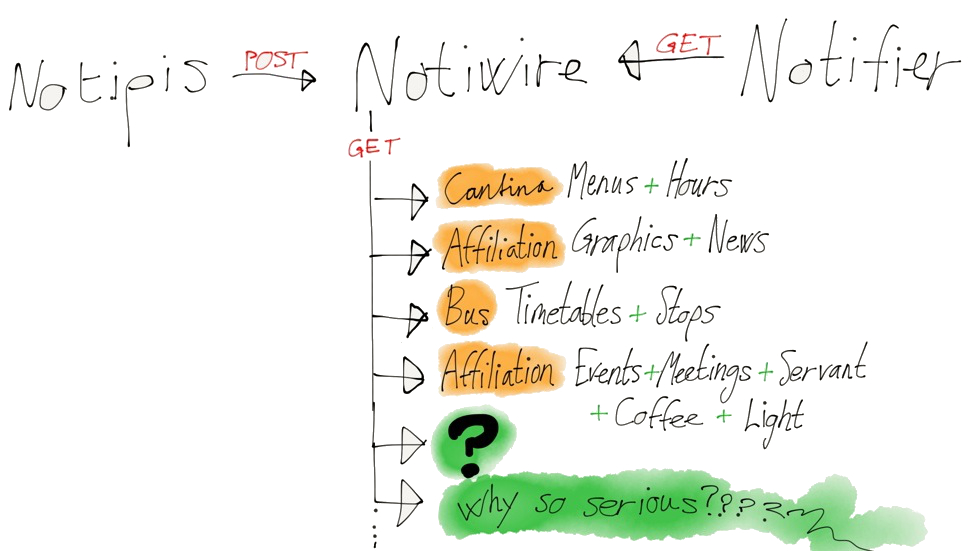 Notipis POST Notiwire GET Notifier
GET
Cantina Menus + Hours
Affiliation Graphics + News
Bus Timetables + Stops
Affiliation Events + Meetings + Servant
+ Coffee + Light
?
Why so serious????